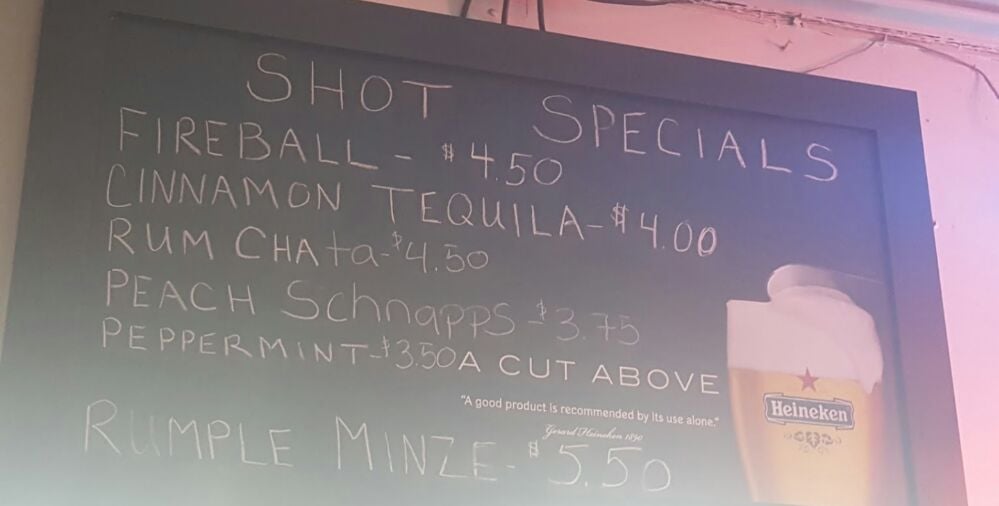 SHOT SPECIALS
FIREBALL - $4.50
CINNAMON TEQUILA - $4.00
RUM CHAta - $4.50
PEACH Schnapps - $3.75
PEPPERMINT - $3.50
A CUT ABOVE
"A good product is recommended by its use alone."
Gerard Heineken 1890
RUMPLE MINZE - $5.50
Heineken